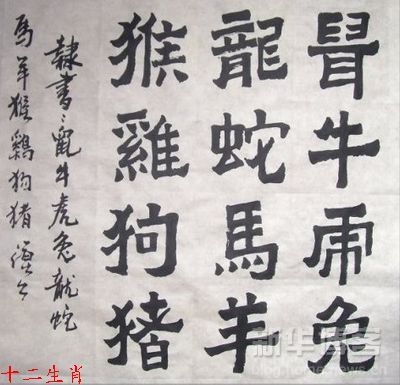 鼠牛虎兔
龍蛇馬羊
猴雞狗猪
隸書：鼠牛虎兔龍蛇
馬羊猴鷄狗猪
十二生肖
新华博客